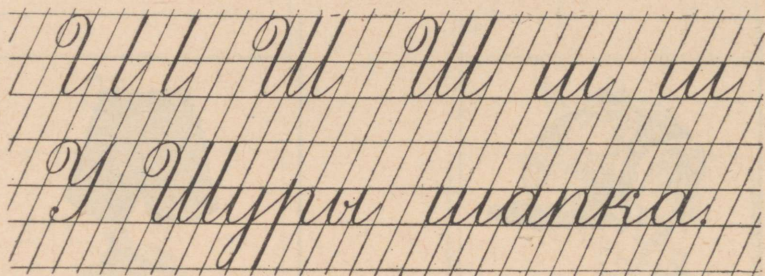 Ш Ш Ш ш ш
У Шуры шапка.